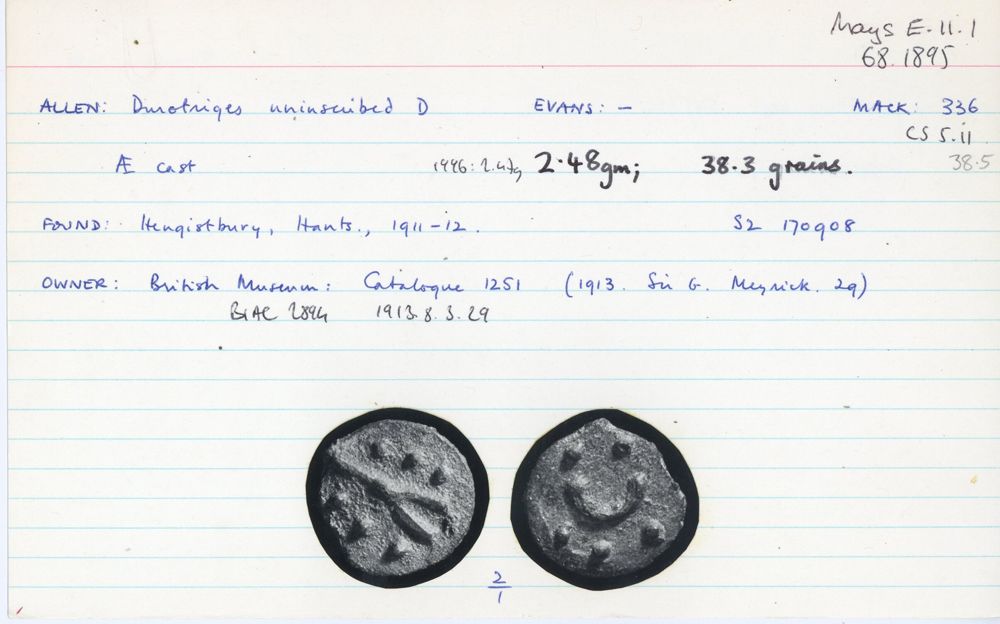 Mays E.11.1
68.1895
ALLEN: Durotriges uninscribed D EVANS: – MACK: 336
CS 5.11
Æ cast 1996: 2.47g 2.48gm; 38.3 grains. 38.5
FOUND: Hengistbury, Hants., 1911-12. SZ 170908
OWNER: British Museum: Catalogue 1251 (1913. Sir G. Meyrick. 29)
BIAC 2894 1913.8.3.29
2
1